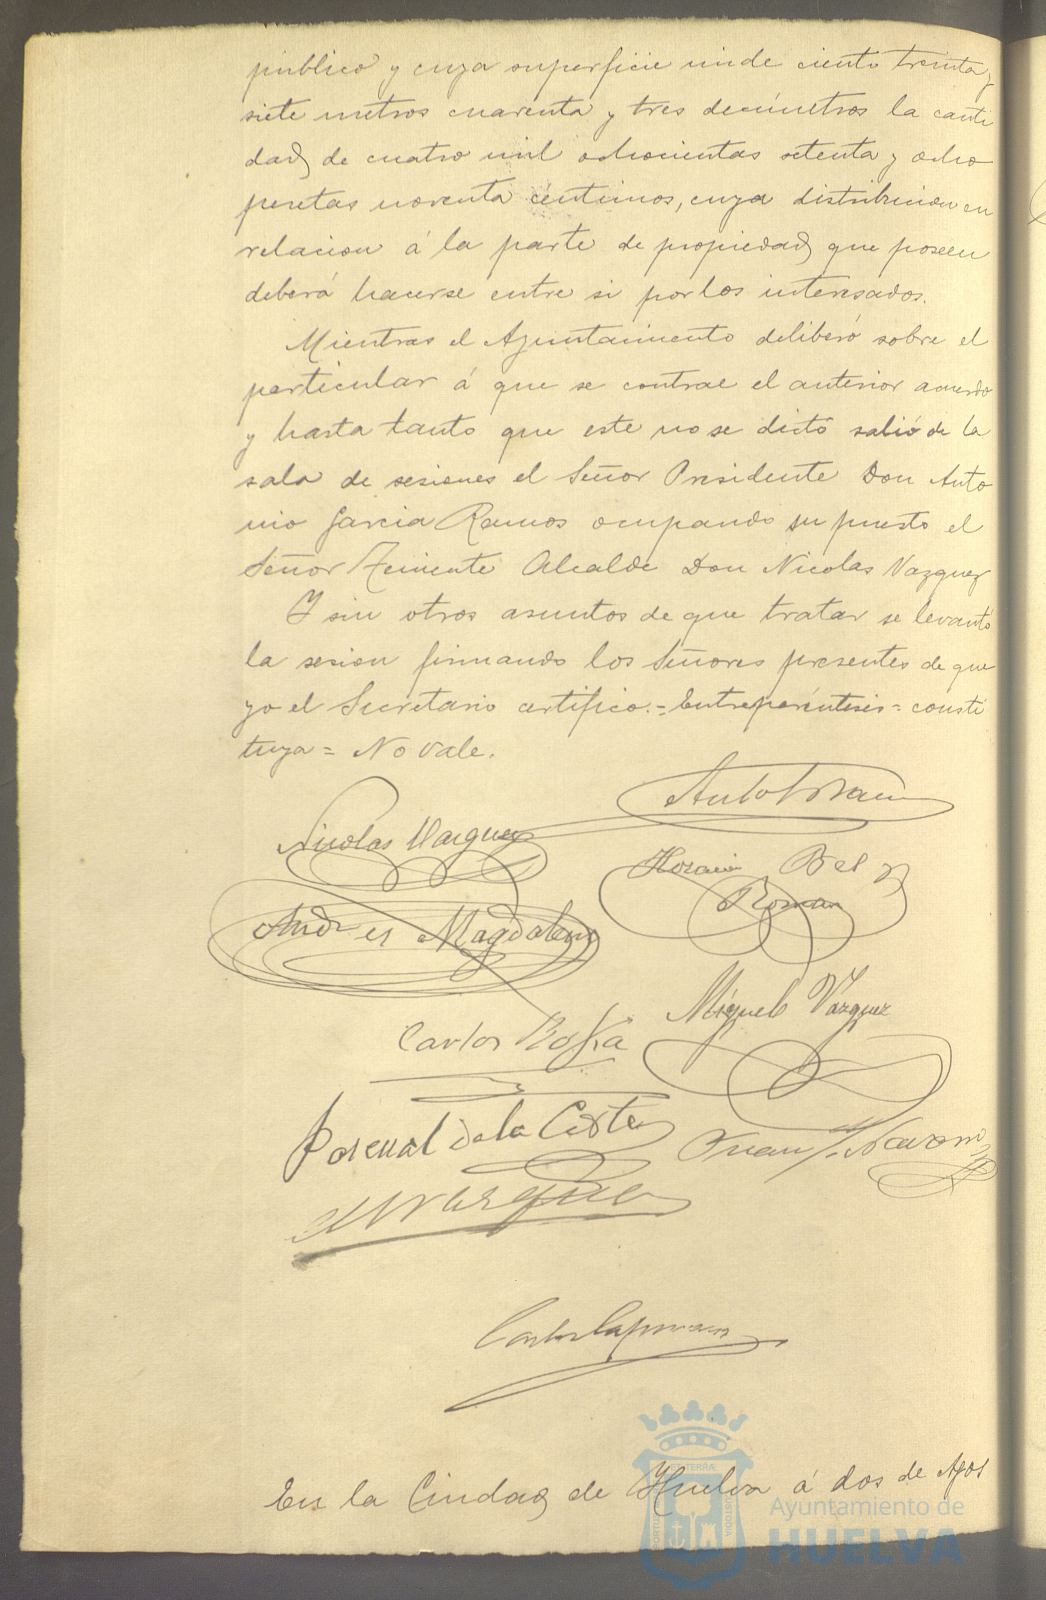 público y cuya superficie mide ciento treinta y
siete metros cuarenta y tres decímetros la canti
dad de cuatro mil ochocientas setenta y ocho
pesetas noventa céntimos, cuya distribucion en
relacion á la parte de propiedad que poseen
deberá hacerse entre si por los interesados.
Mientras el Ayuntamiento deliberó sobre el
particular á que se contrae el anterior acuerdo
y hasta tanto que este no se dictó salió de la
sala de sesiones el Señor Presidente Don Anto
nio Garcia Ramos ocupando su puesto el
Señor Teniente Alcalde Don Nicolas Vazquez
Y sin otros asuntos de que tratar se levantó
la sesion firmando los Señores presentes de que
yo el Secretario certifico.=Entreparéntesis=consti
tuya=No vale.
Nicolas Vazquez
Horacio Bel
Roman
Andres Magdalena
Miguel Vazquez
Carlos
Pascual de la Corte
Juan J. Navarro
Vazquez
En la Ciudad de Huelva á dos de Agos
PORTUS
CUSTODIA
Ayuntamiento de
HUELVA